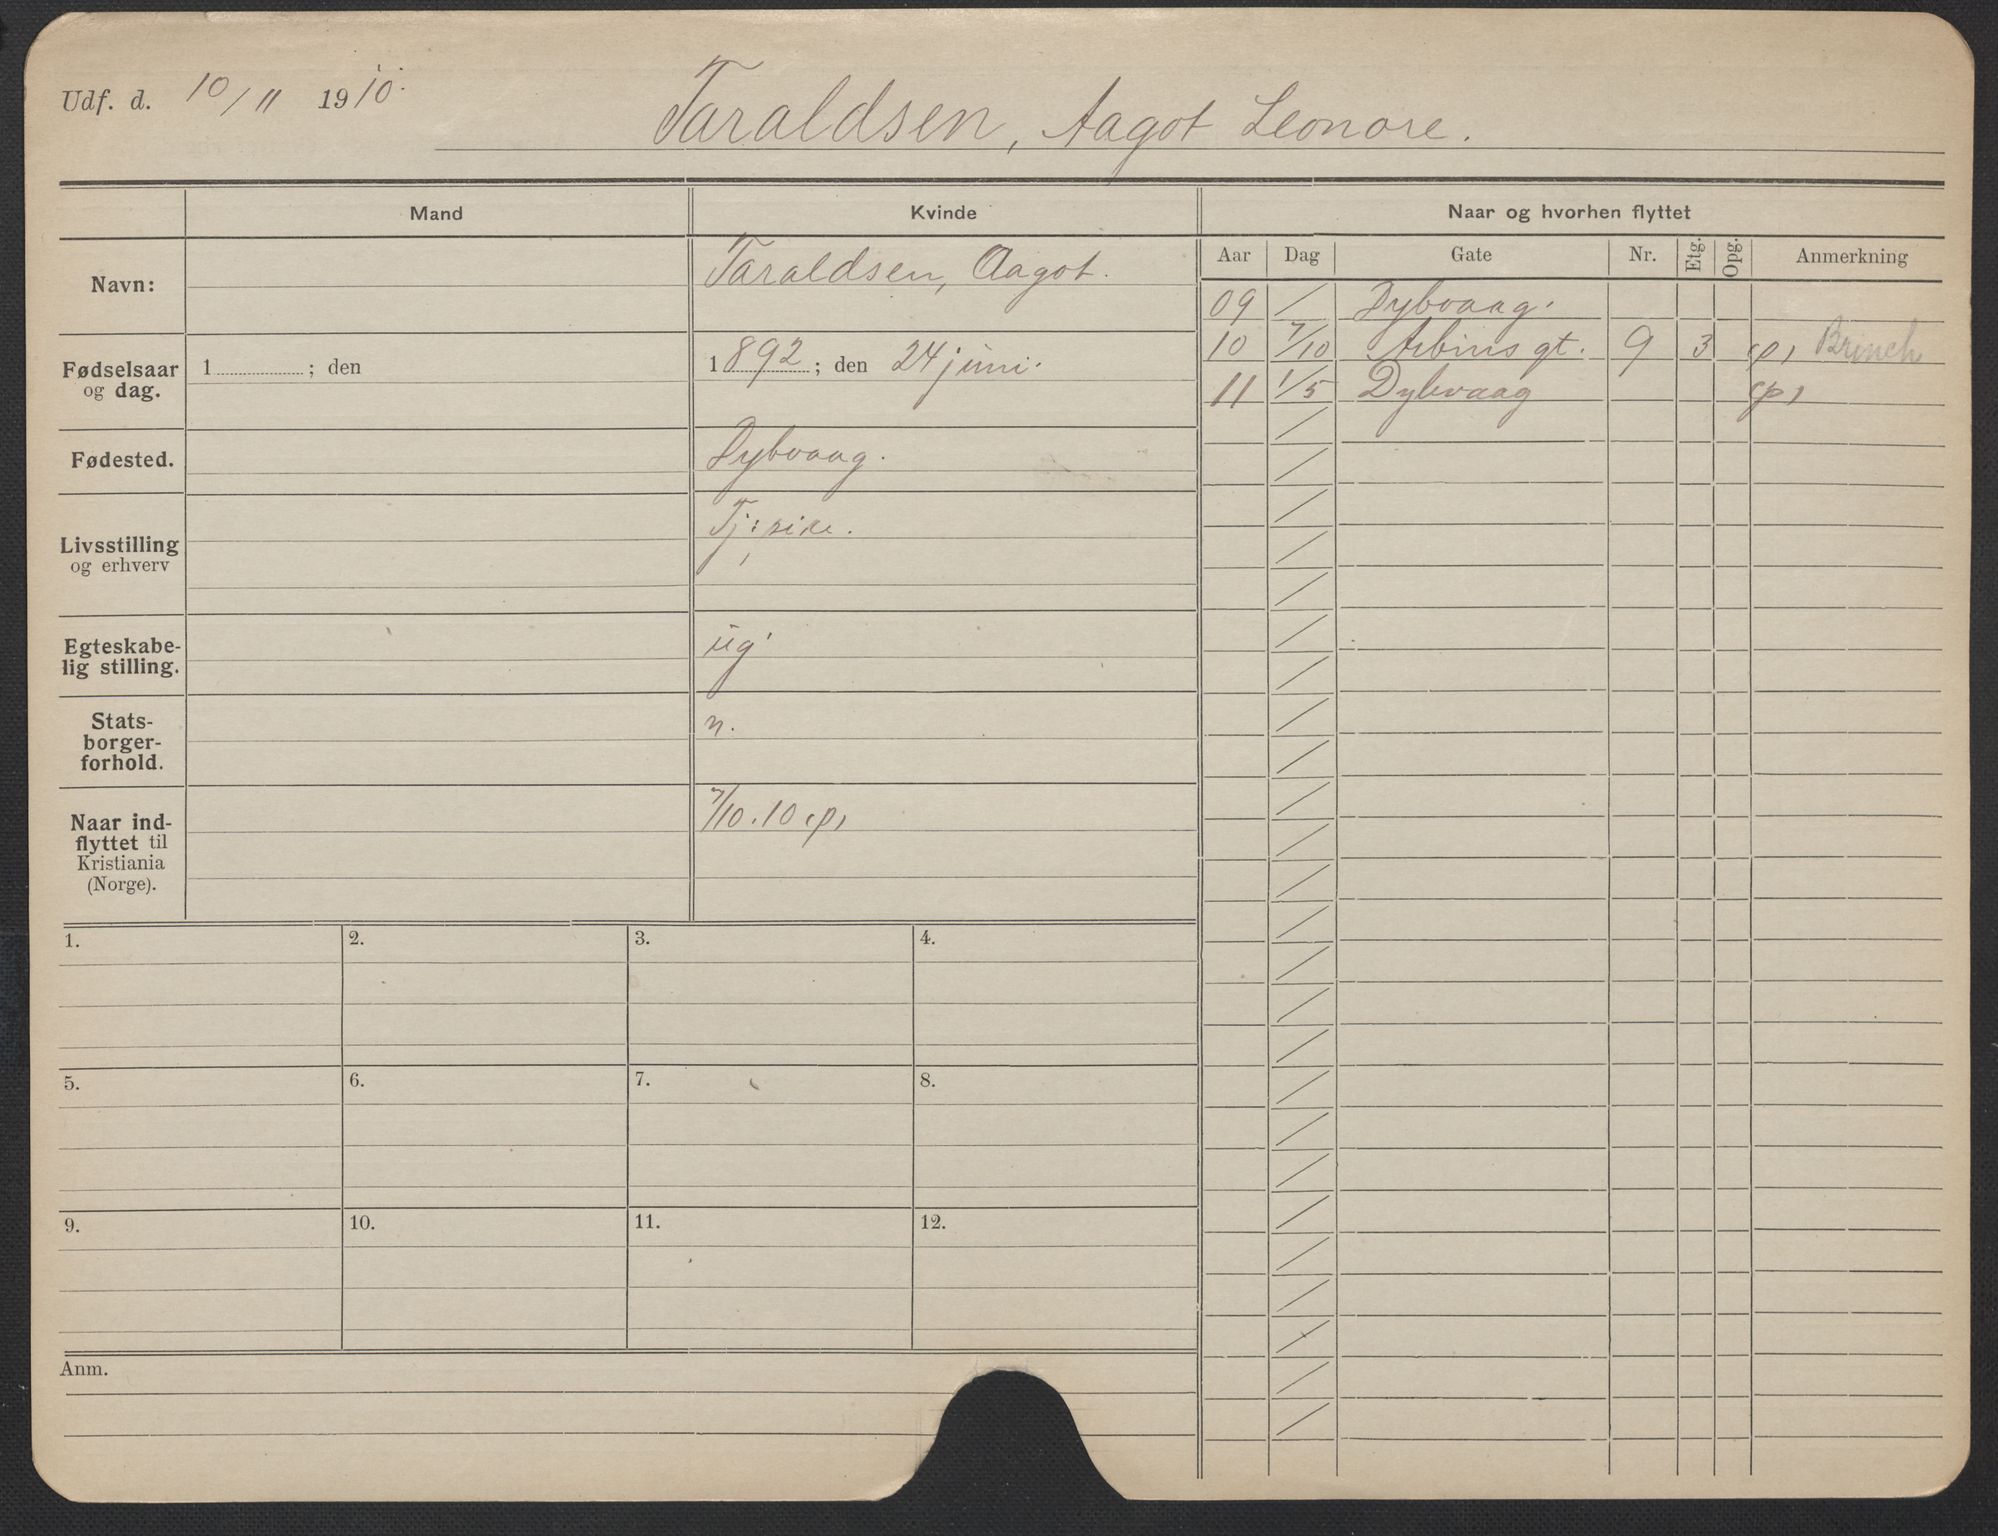 Udf. d. 10/11 1910.
Taraldsen, Aagot Leonore.
Mand Kvinde Naar og hvorhen flyttet
Aar Dag Gate Nr. Etg. Opg. Anmerkning
Navn: Taraldsen, Aagot.
Fødselsaar og dag. 1 ; den 1892 ; den 24 juni.
Fødested. Dybvaag.
Livsstilling og erhverv Tj: pike.
Egteskabe-
lig stilling. ug
Stats-
borger-
forhold. n.
Naar ind-
flyttet til
Kristiania
(Norge). 7/10.10 (p)
09 / Dybvaag.
10 7/10 Arbins gt. 9 3 (p) Brinch
11 1/5 Dybvaag (p)
1. 2. 3. 4.
5. 6. 7. 8.
9. 10. 11. 12.
Anm.